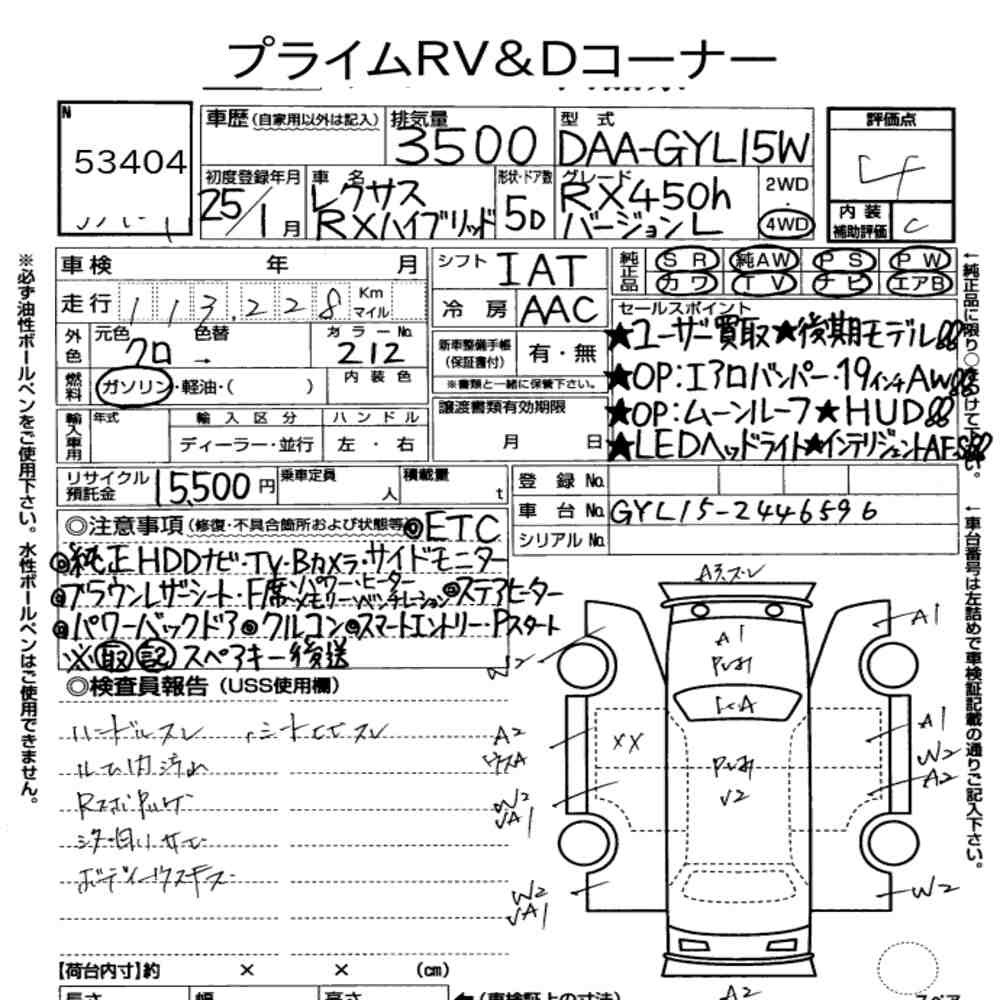 プライムRV&Dコーナー
N
53404
車歴(自家用以外は記入)
排気量
3500
型 式
DAA-GYL15W
評価点
4
初度登録年月
25/1月
車 名
レクサス
RXハイブリッド
形状・ドア数
5D
グレード
RX450h
バージョンL
2WD
・
4WD
内 装
補助評価
C
車検 年 月
走行 113,228 Km
マイル
シフト IAT
冷 房 AAC
純正品
SR 純AW PS PW
カワ TV ナビ エアB
外色
元色 色替
クロ →
カラーNo.
212
燃料
ガソリン・軽油・( )
内 装 色
新車整備手帳
(保証書付)
有・無
※書類と一緒に保管下さい。
セールスポイント
★ユーザー買取★後期モデル!!
★OP:エアロバンパー・19インチAW!!
★OP:ムーンルーフ★HUD!!
★LEDヘッドライト★インテリジェントAFS!!
輸入車用
年式
輸 入 区 分
ディーラー・並行
ハ ン ド ル
左 ・ 右
譲渡書類有効期限
月 日
リサイクル
預託金
15,500円
乗車定員
人
積載量
t
登 録 No.
車 台 No. GYL15-2446596
シリアル No.
◎注意事項(修復・不具合箇所および状態等)◎ETC
◎純正HDDナビ・TV・Bカメラ・サイドモニター
◎ブラウンレザーシート・F席:パワー・ヒーター
メモリー・ベンチレーション◎ステアヒーター
◎パワーバックドア◎クルコン◎スマートエントリー・Pスタート
※取記スペアキー後送
◎検査員報告(USS使用欄)
ハンドルスレ
ルーム内汚れ
ボディーワスキズ
Aスズレ
A1
A1
W2
A2
XX
A1
W2
A2
W2
V2
W2
A1
W2
A2
【荷台内寸】約 × × (cm)
長さ 幅 高さ
←(車検証上の寸法)
スペア
※必ず油性ボールペンをご使用下さい。水性ボールペンはご使用できません。
←純正品に限り○をつけて下さい。
←車台番号は左詰めで車検証記載の通りご記入下さい。